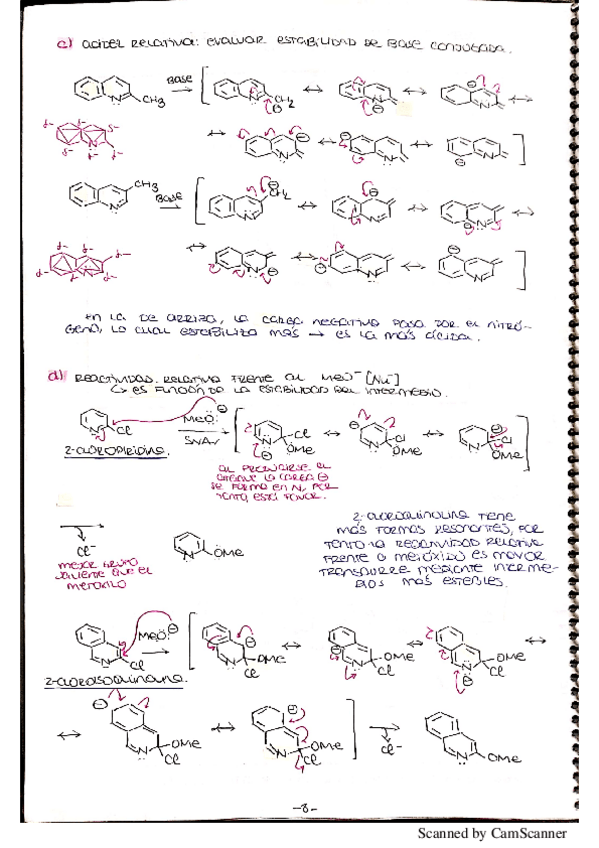 c) ACIDEZ RELATIVA: EVALUAR ESTABILIDAD DE BASE CONJUGADA.
CH3 Base CH2
CH3 Base CH2
EN LA DE ARRIBA, LA CARGA NEGATIVA PASA POR EL NITRÓ-
GENO, LO CUAL ESTABILIZA MÁS → ES LA MÁS ÁCIDA.
d) REACTIVIDAD RELATIVA FRENTE AL MeO⁻ [Nu⁻]
↳ ES FUNCIÓN DE LA ESTABILIDAD DEL INTERMEDIO.
Cl MeO SNAr Cl OMe Cl OMe Cl OMe
2-CLOROPIRIDINA.
AL PRODUCIRSE EL
ATAQUE LA CARGA ⊖
SE FORMA EN N, POR
TANTO ESTÁ FAVOR.
Cl⁻ OMe
MEJOR GRUPO
SALIENTE QUE EL
METOXILO
2-CLOROQUINOLINA TIENE
MÁS FORMAS RESONANTES, POR
TANTO LA REACTIVIDAD RELATIVA
FRENTE A METÓXIDO ES MAYOR
TRANSCURRE MEDIANTE INTERME-
DIOS MÁS ESTABLES.
Cl MeO OMe Cl OMe Cl OMe Cl
2-CLOROISOQUINOLINA.
OMe Cl OMe Cl Cl⁻ OMe
-8-
Scanned by CamScanner